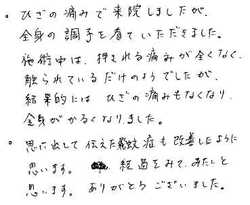 。ひざの痛みで来院しましたが、
全身の調子を看ていただきました。
施術中は、押される痛みが全くなく、
触られているだけのようでしたが、
結果的には ひざの痛みもなくなり、
全身がかるくなりました。
。思い出して伝えた飛蚊症も改善したように
思います。 経過をみて、みたいと
思います。 ありがとうございました。